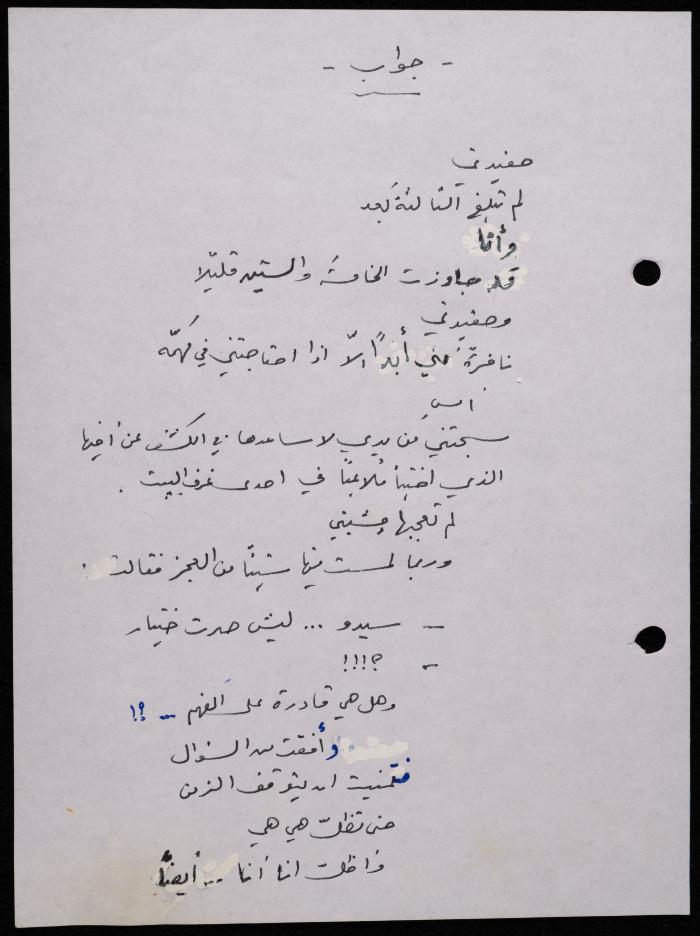 - جواب -
حفيدتي
لم تبلغ الثالثةَ بَعد
وأنا
قد جاوزت الخامسَة والستين قليلًا
وحفيدتي
نافرةٌ مني أبدًا الّا اذا احتاجتني في مُهمّه
امسِ
سحبتني من يدي لاساعدها في الكشف عن أخيها
الذي اختبأ مُلاعِبًا في احدى غرف البيت .
لم تعجبها مِشيتي
وربما لمست فيها شيئًا من العجز فقالت :
- سيدو ... ليش صرت ختيار
- ؟!!!
وهل هي قادرة على الفهم ... ؟!
وأفقت من السؤال
فتمنيت ان يتوقف الزمن
حتى تظلّ هي هي
وَاظلّ انا أنا ... أيضًا